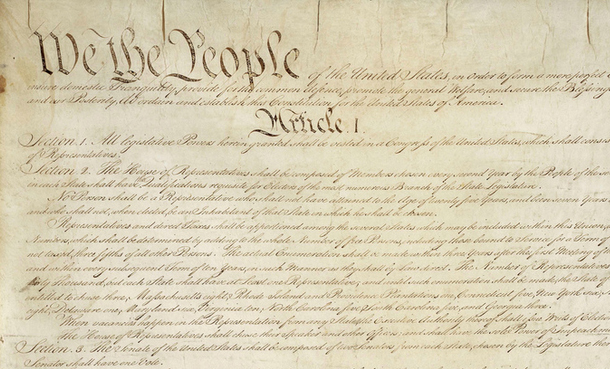 We the People of the United States, in Order to form a more perfect
insure domestic Tranquility, provide for the common defence, promote the general Welfare, and secure the Blessings
and our Posterity, do ordain and establish this Constitution for the United States of America.
Article. I.
Section. 1. All legislative Powers herein granted shall be vested in a Congress of the United States, which shall consist
of Representatives.
Section. 2. The House of Representatives shall be composed of Members chosen every second Year by the People of the
in each State shall have Qualifications requisite for Electors of the most numerous Branch of the State Legislature.
No Person shall be a Representative who shall not have attained to the Age of twenty five Years, and been seven Years
and who shall not, when elected, be an Inhabitant of that State in which he shall be chosen.
Representatives and direct Taxes shall be apportioned among the several States which may be included within this Union,
Numbers, which shall be determined by adding to the whole Number of free Persons, including those bound to Service for a Term of
not taxed, three fifths of all other Persons. The actual Enumeration shall be made within three Years after the first Meeting of the
and within every subsequent Term of ten Years, in such Manner as they shall by Law direct. The Number of Representatives
thirty Thousand, but each State shall have at Least one Representative; and until such enumeration shall be made, the State of
entitled to chuse three, Massachusetts eight, Rhode Island and Providence Plantations one, Connecticut five, New York six,
eight, Delaware one, Maryland six, Virginia ten, North Carolina five, South Carolina five, and Georgia three.
When vacancies happen in the Representation from any State, the Executive Authority thereof shall issue Writs of Election
The House of Representatives shall chuse their Speaker and other Officers; and shall have the sole Power of Impeachment.
Section. 3. The Senate of the United States shall be composed of two Senators from each State, chosen by the Legislature
Senator shall have one Vote.